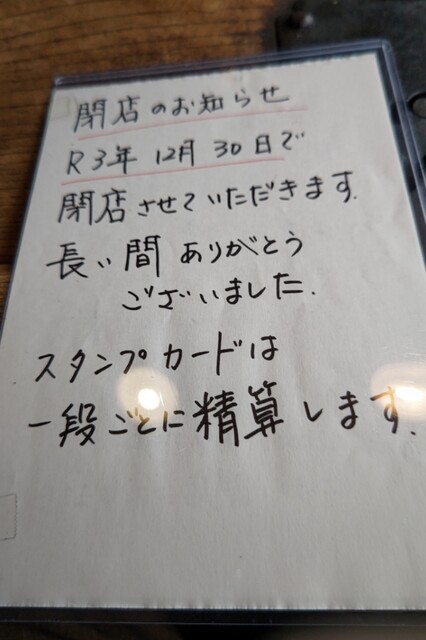 閉店のお知らせ
R3年 12月 30日で
閉店させていただきます.
長い間 ありがとう
ございました.
スタンプカードは
一段ごとに精算します.